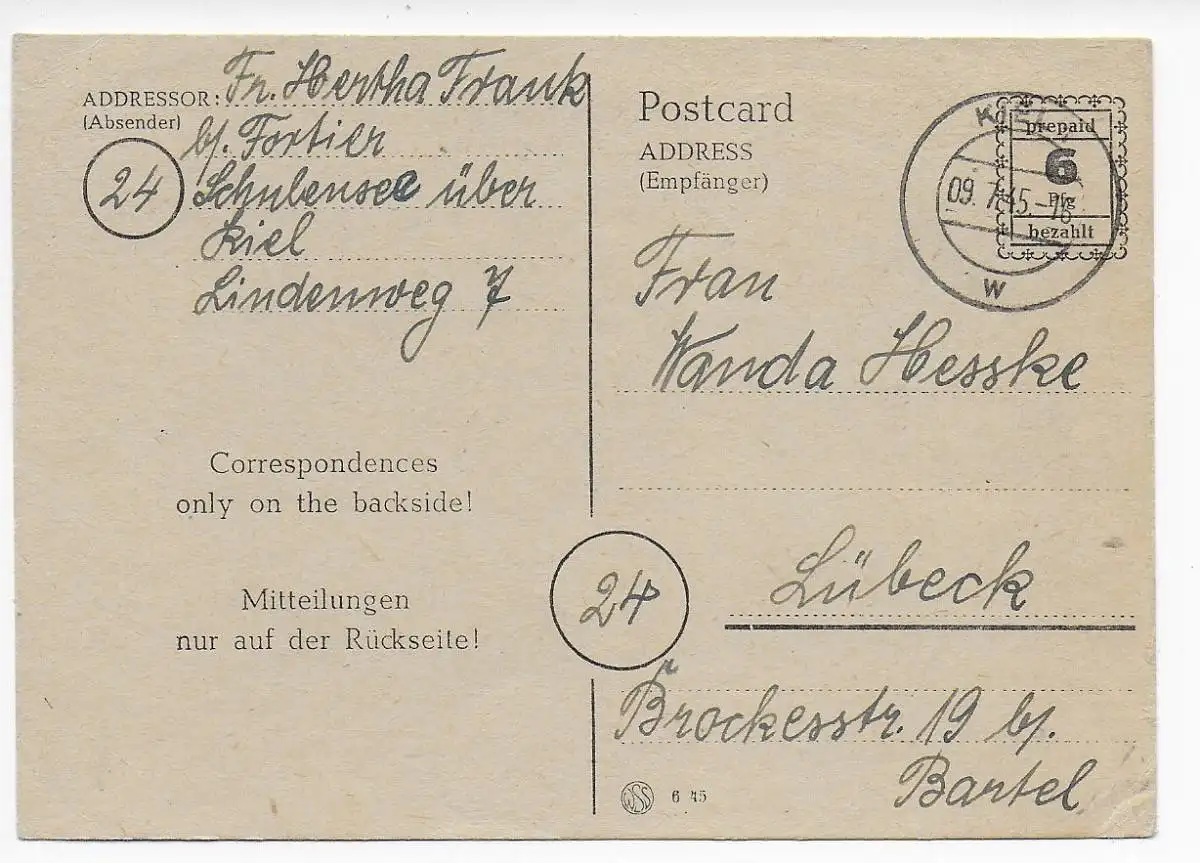 ADDRESSOR: Fr. Hertha Frank
(Absender)
b/. Fortier
24 Schulensee über
Kiel
Lindenweg 7
Correspondences
only on the backside!
Mitteilungen
nur auf der Rückseite!
Postcard
ADDRESS
(Empfänger)
KIEL
09.7.45.-16
W
prepaid
6
Pfg
bezahlt
Frau
Wanda Hesske
24 Lübeck
Brockesstr. 19 b/.
Bartel
WSS 6 45